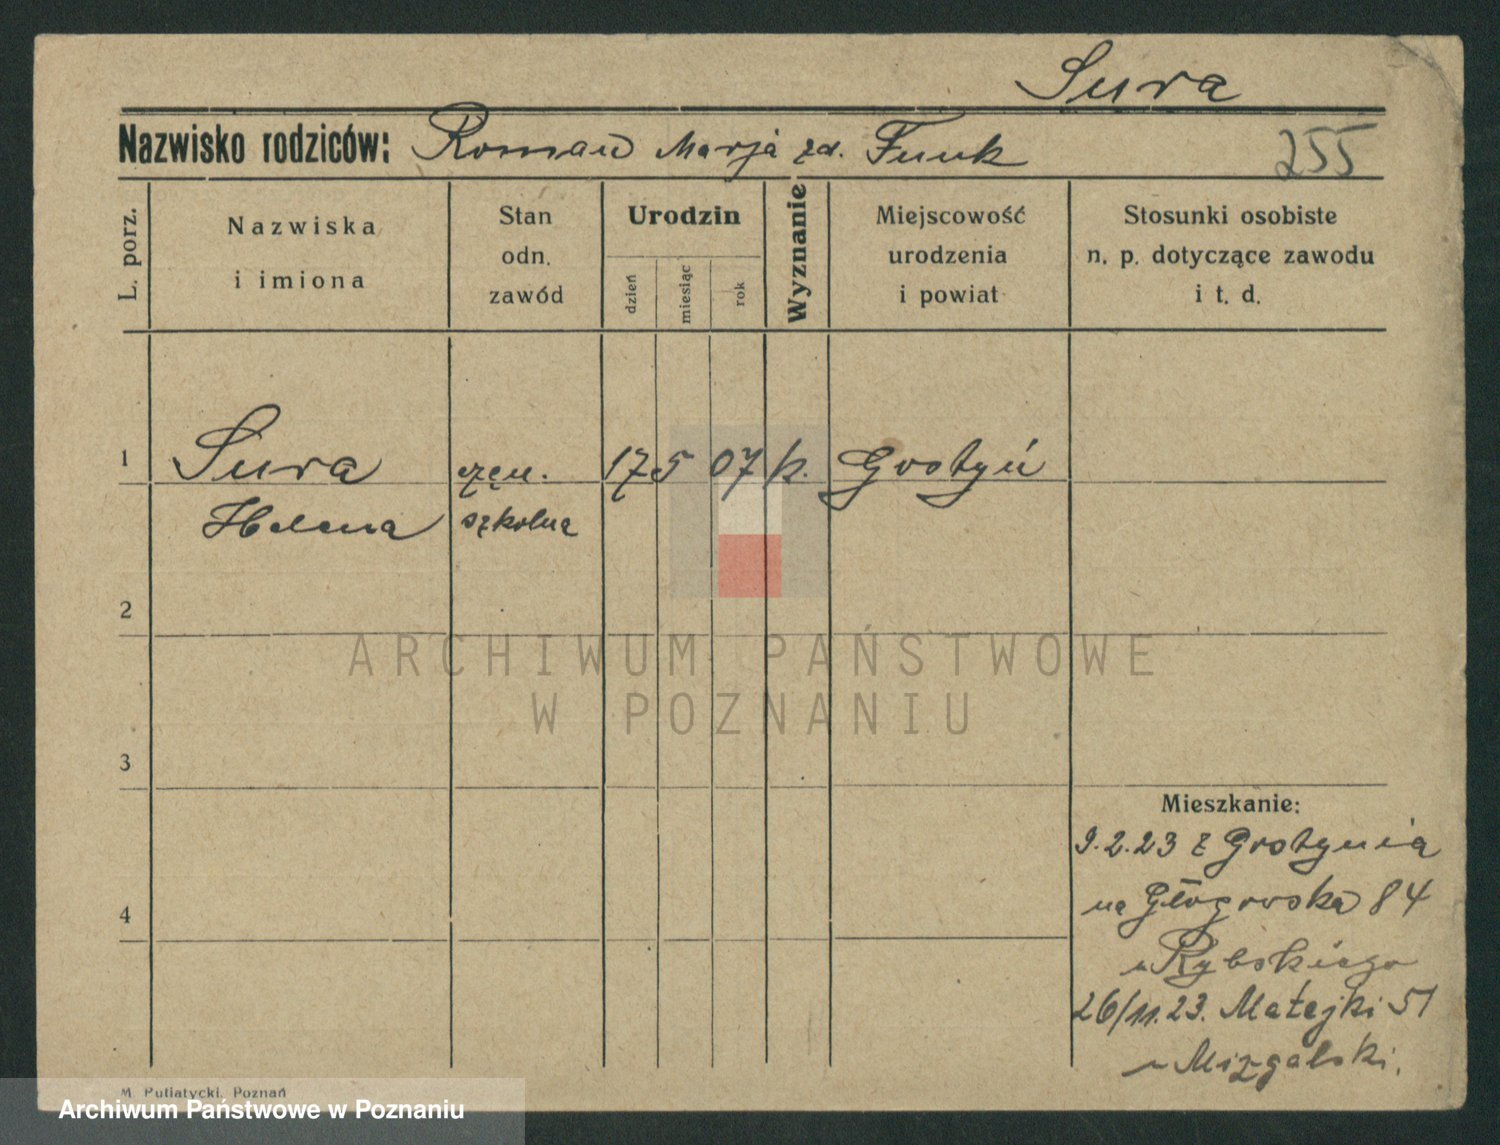 Sura
Nazwisko rodziców: Roman Marja zd. Funk
255
L. porz.
Nazwiska
i imiona
Stan
odn.
zawód
Urodzin
dzień
miesiąc
rok
Wyznanie
Miejscowość
urodzenia
i powiat
Stosunki osobiste
n. p. dotyczące zawodu
i t. d.
1 Sura uczen. 17 5 07 k. Gostyń
Helena szkolna
2
ARCHIWUM PAŃSTWOWE
W POZNANIU
3
Mieszkanie:
9.2.23 z Gostynia
4 na Głogowska 84
u Rybskiego
26/11.23. Matejki 51
u Mizgalski.
M. Putiatycki, Poznań
Archiwum Państwowe w Poznaniu